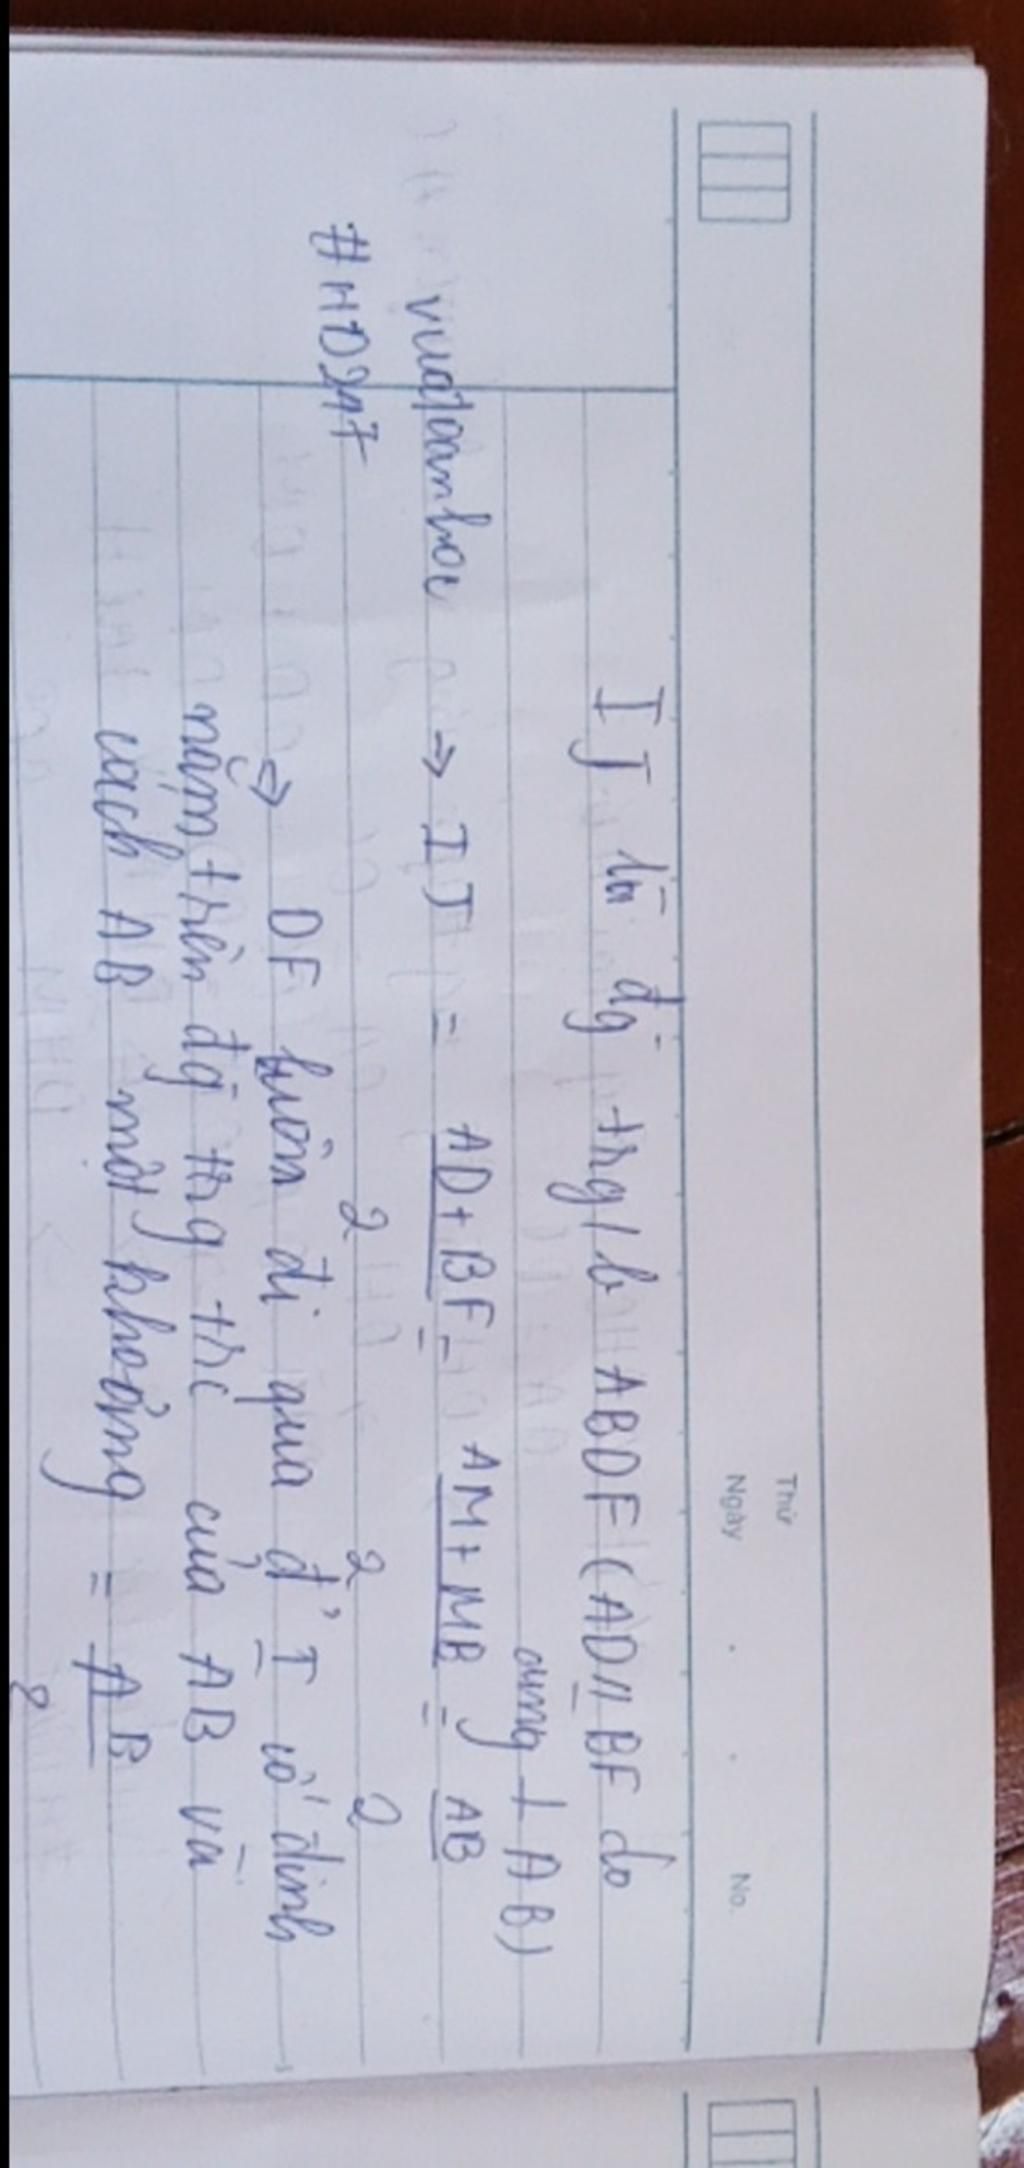 Thứ
Ngày
No.
IJ là đg trg/b ABDF (AD // BF do
cùng ⊥ AB)
vuatoanhoc → IJ = AD + BF = AM + MB = AB
2 2 2
#HD247
⇒ DF luôn đi qua đ' I cố định
nằm trên đg trg trc của AB và
cách AB một khoảng = AB
2